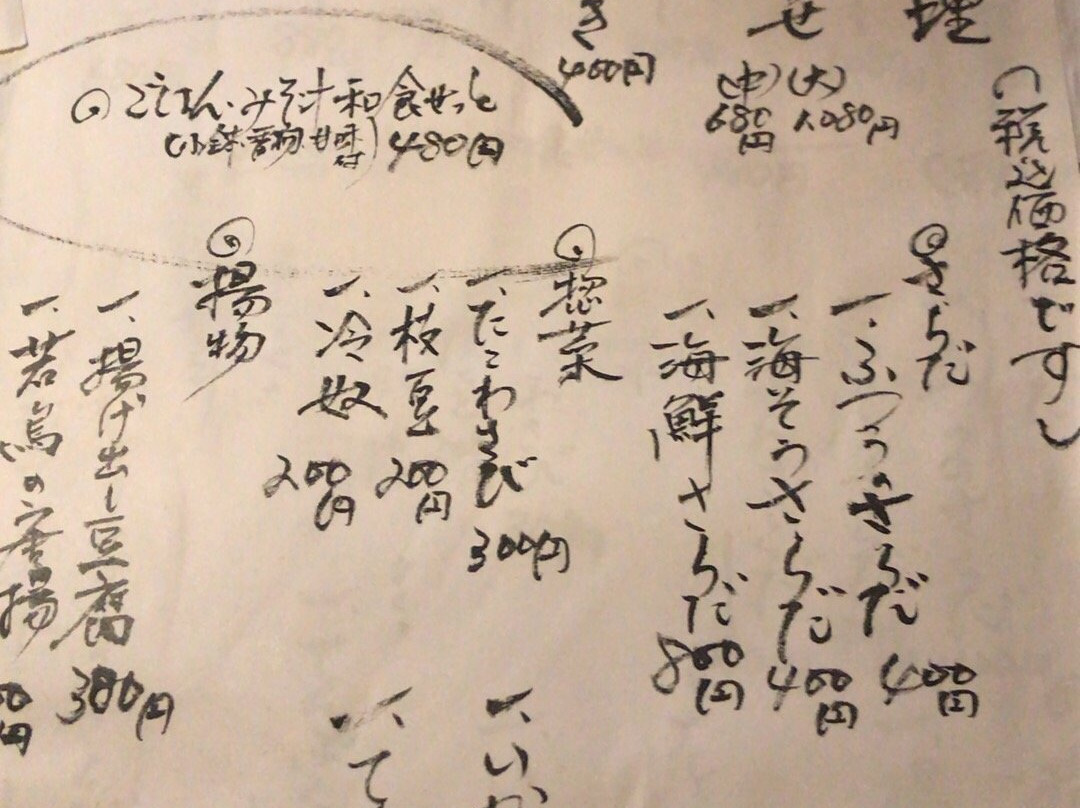 理
(税込価格です)
せ
(大)
1,080円
(中)
680円
き
400円
ごはん・みそ汁和食せっと
(小鉢・香物・甘味付)480円
さらだ
一、ふつうのさらだ 400円
一、海そうさらだ 400円
一、海鮮さらだ 800円
惣菜
一、たこわさび 300円
一、枝豆 200円
一、冷奴 200円
揚物
一、揚げ出し豆腐 380円
一、若鳥の唐揚
00円
一、いか
一、て